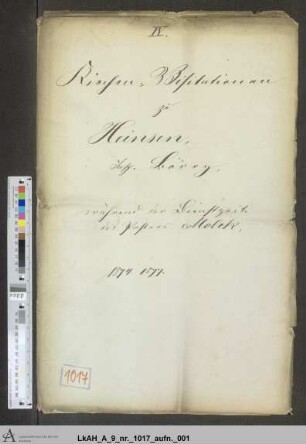 IV.
Kirchen-Visitationen
zu
Heinsen,
Börry,
während der Dienstzeit
des Pastors Molck,
1874. 1877.
1017
LkAH_A_9_nr._1017_aufn._001